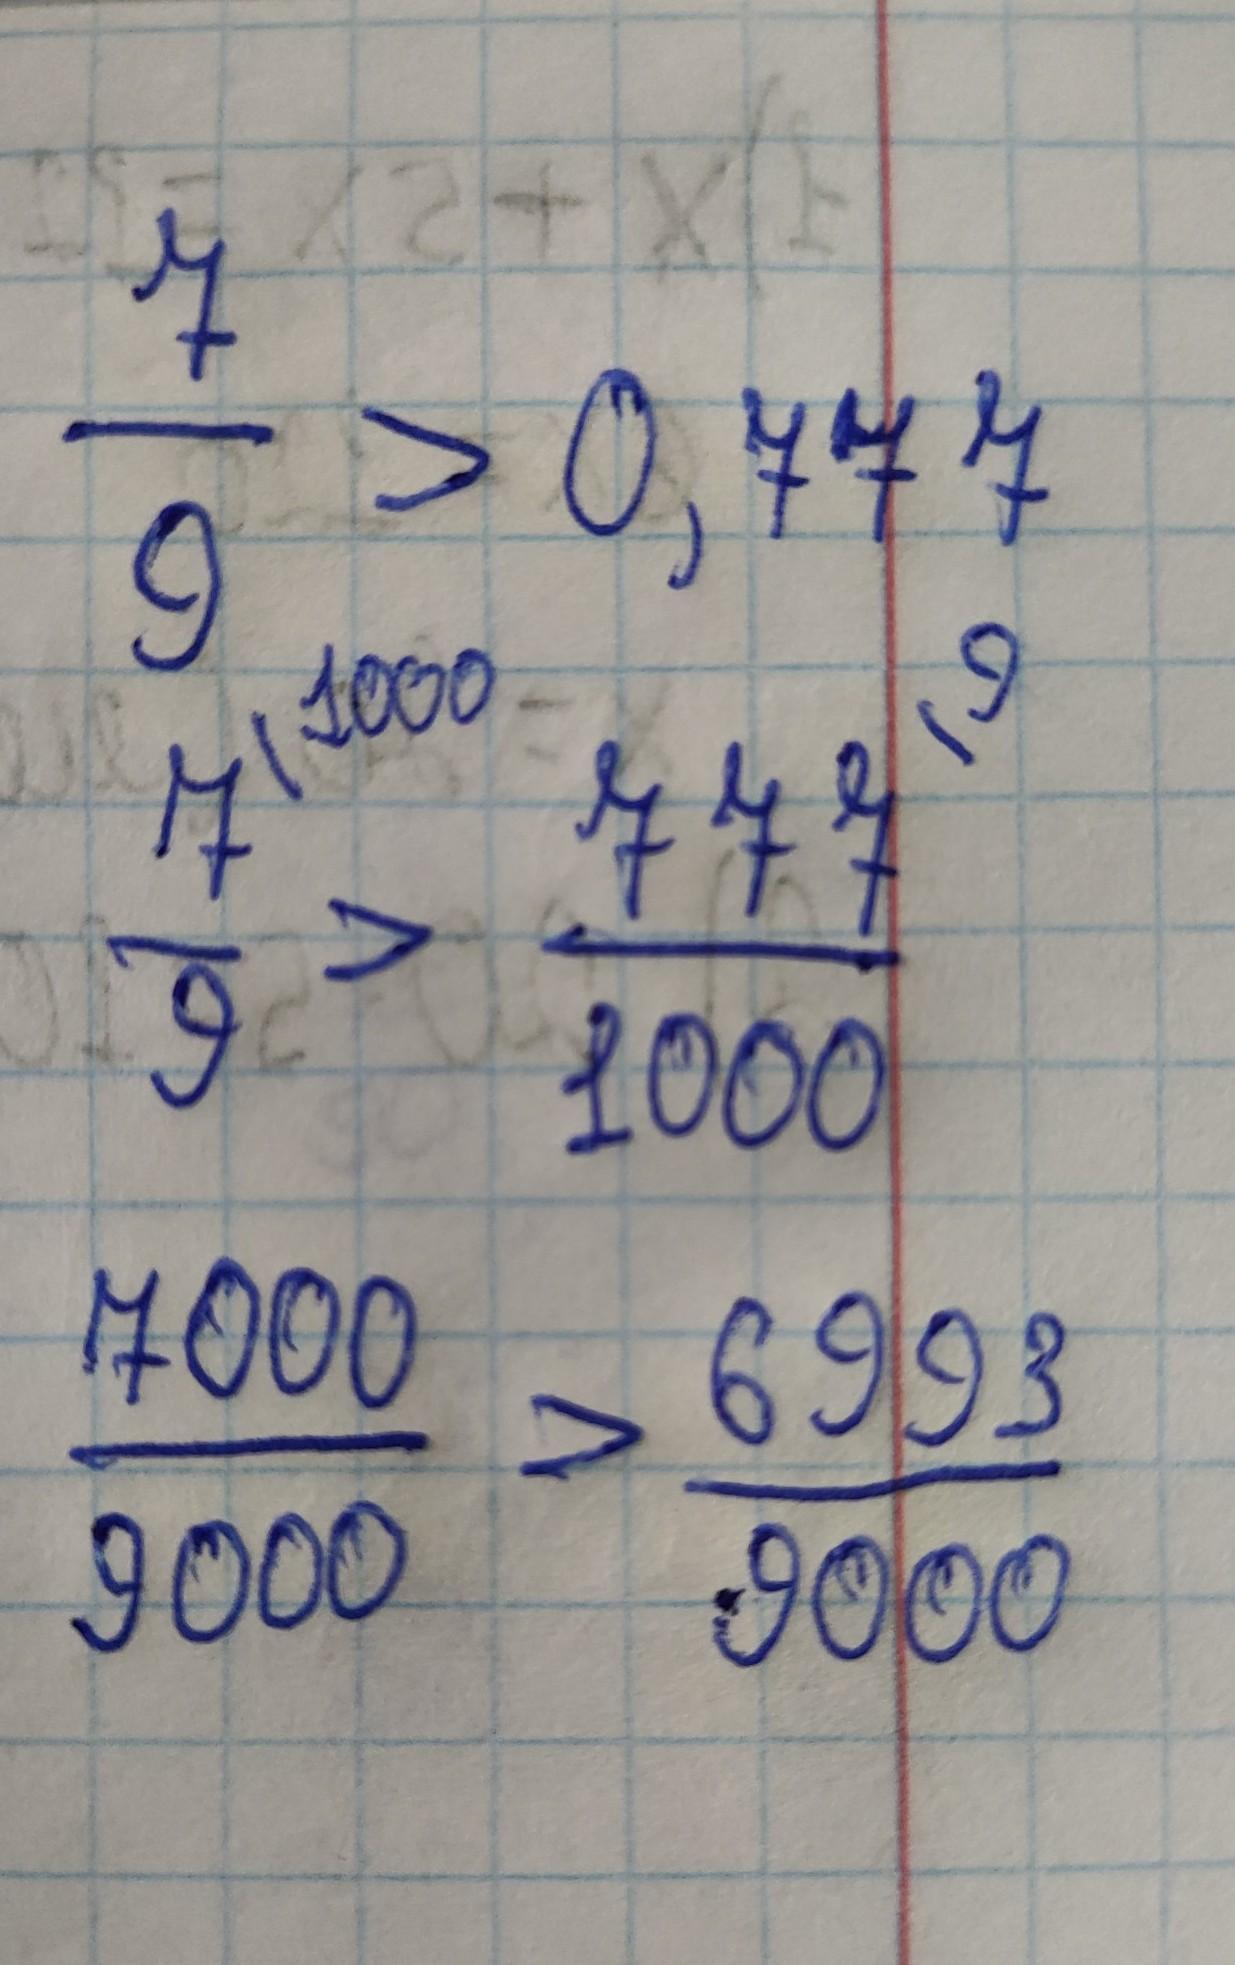 7/9 > 0,777
7/9 \1000 > 777/1000 \9
7000/9000 > 6993/9000